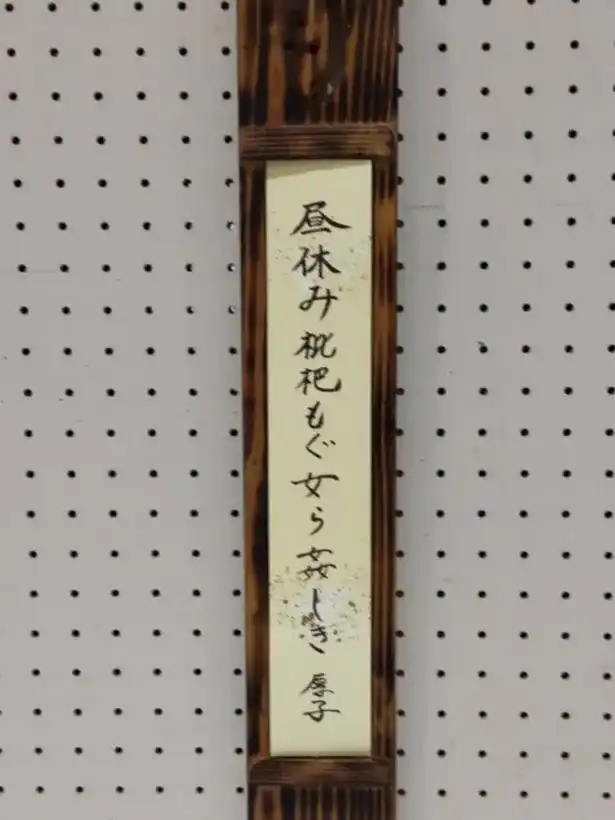 昼休み枇杷もぐ女ら姦しき 厚子